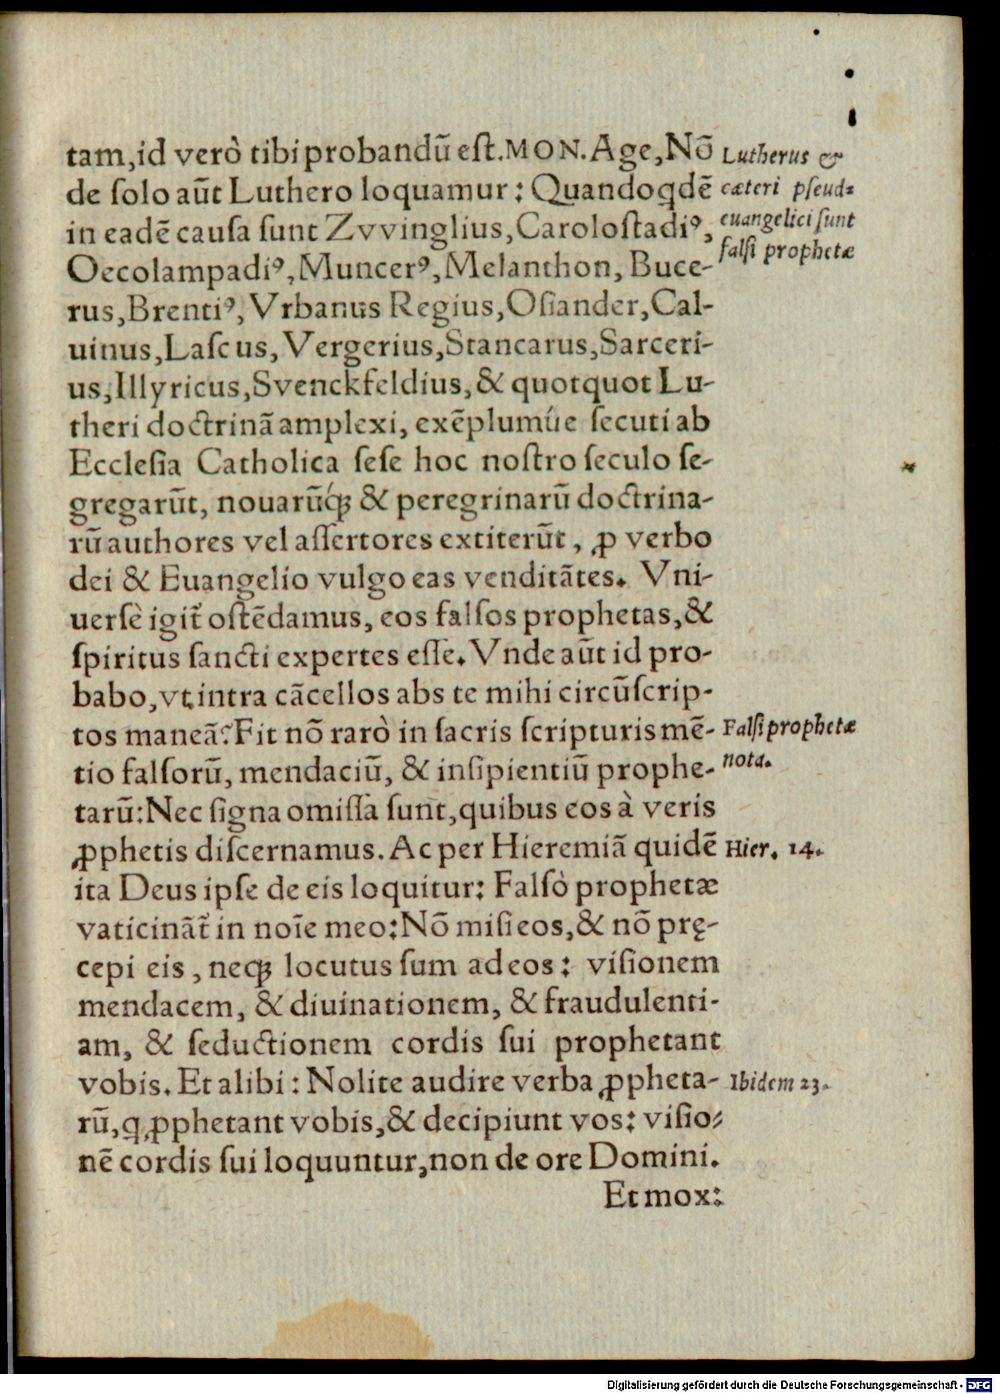 tam,id verò tibi probandū eſt.MON.Age,Nō
de ſolo aūt Luthero loquamur: Quandoqdē
in eadē cauſa ſunt Zvvinglius,Caroloſtadiꝰ,
Oecolampadiꝰ,Muncerꝰ,Melanthon, Buce-
rus,Brentiꝰ,Vrbanus Regius,Oſiander,Cal-
uinus,Laſcus, Vergerius,Stancarus,Sarceri-
us,Illyricus,Svenckfeldius,& quotquot Lu-
theri doctrinā amplexi, exēplumúe ſecuti ab
Eccleſia Catholica ſeſe hoc noſtro ſeculo ſe-
gregarūt, nouarūq́ꝫ & peregrinarū doctrina-
rū authores vel aſſertores extiterūt, ꝓ verbo
dei & Euangelio vulgo eas venditātes. Vni-
uerſè igit̄ oſtēdamus, eos falſos prophetas,&
ſpiritus ſancti expertes eſſe. Vnde aūt id pro-
babo,vt intra cācellos abs te mihi circūſcrip-
tos maneā? Fit nō rarò in ſacris ſcripturis mē-
tio falſorū, mendaciū, & inſipientiū prophe-
tarū: Nec ſigna omiſſa ſunt,quibus eos à veris
ꝓphetis diſcernamus. Ac per Hieremiā quidē
ita Deus ipſe de eis loquitur: Falſò prophetæ
vaticināt̄ in noīe meo: Nō miſi eos,& nō prę-
cepi eis, neqꝫ locutus ſum ad eos: viſionem
mendacem, & diuinationem, & fraudulenti-
am, & ſeductionem cordis ſui prophetant
vobis. Et alibi: Nolite audire verba ꝓpheta-
rū,q ꝓphetant vobis,& decipiunt vos: viſio-
nē cordis ſui loquuntur,non de ore Domini.
Et mox:
Lutherus &
cæteri pſeud-
euangelici ſunt
falſi prophetæ
Falſi prophetæ
nota.
Hier. 14.
Ibidem 23.
Digitalisierung gefördert durch die Deutsche Forschungsgemeinschaft - DFG